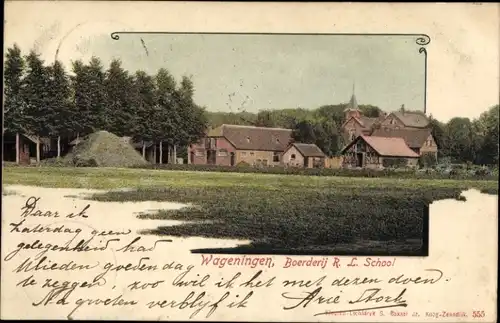 Wageningen, Boerderij R. L. School
Daar ik
Zaterdag geen
gelegenheid had
Ulieden goeden dag
te zeggen, zoo wil ik het met dezen doen.
Na groeten verblijf ik Arie Stork
S. Bakker Jz. Koog-Zaandijk. 555